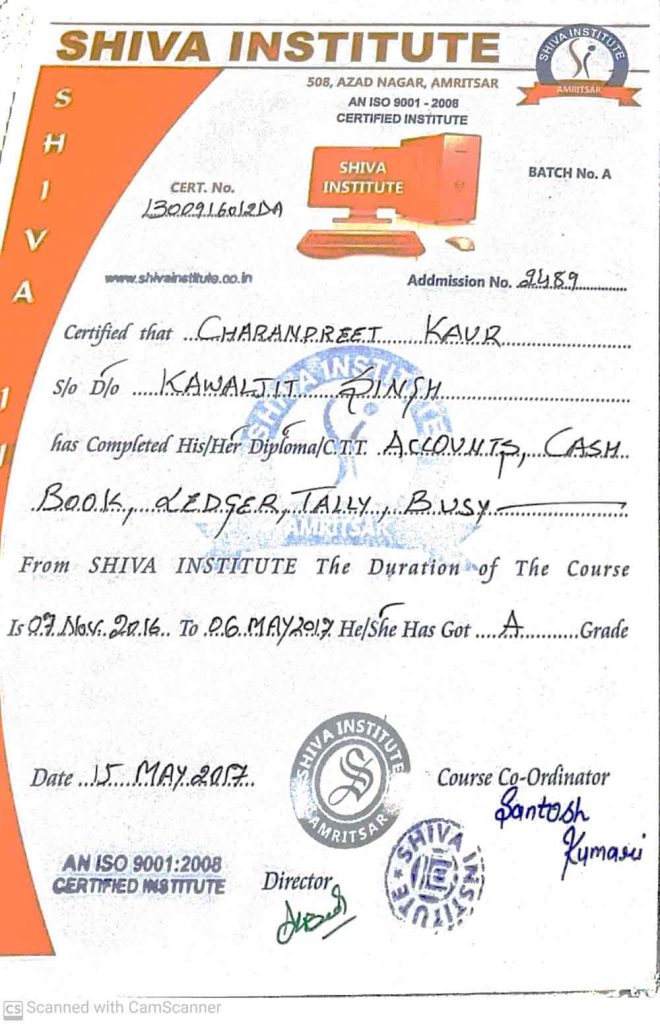 SHIVA INSTITUTE
SHIVA INSTITUTE
AMRITSAR
508, AZAD NAGAR, AMRITSAR
AN ISO 9001 - 2008
CERTIFIED INSTITUTE
SHIVA
SHIVA INSTITUTE
BATCH No. A
CERT. No.
1300916012DA
www.shivainstitute.co.in
Addmission No. 2489
Certified that CHARANPREET KAUR
S/o D/o KAWALJIT SINGH
SHIVA INSTITUTE
AMRITSAR
has Completed His/Her Diploma/C.T.T. ACCOUNTS, CASH
BOOK, LEDGER, TALLY, BUSY
From SHIVA INSTITUTE The Duration of The Course
Is 07 Nov. 2016 To 06 MAY 2017 He/She Has Got A Grade
SHIVA INSTITUTE
S
AMRITSAR
Date 15 MAY 2017
Course Co-Ordinator
Santosh
Kumari
AN ISO 9001:2008
CERTIFIED INSTITUTE
Director
SHIVA INSTITUTE
CS Scanned with CamScanner